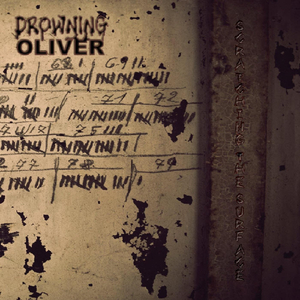 DROWNING
OLIVER
68 69
71 72
75
77 78 79
SCRATCHING THE SURFACE